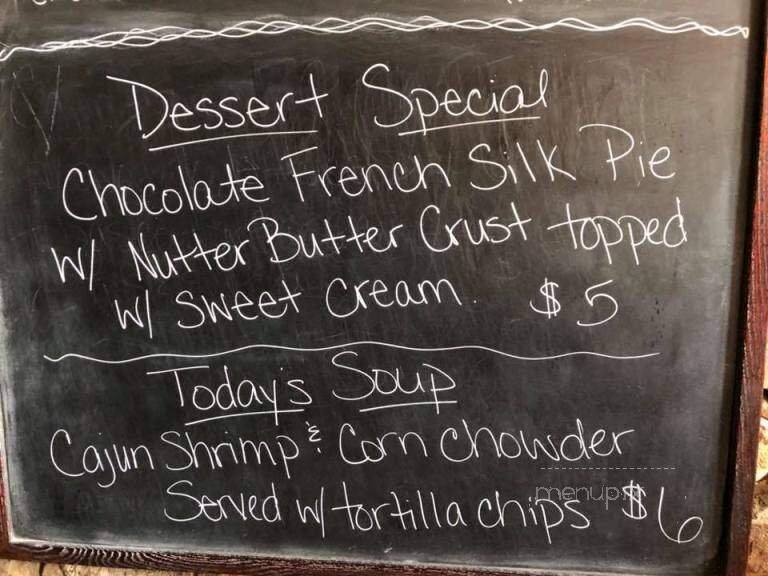 Dessert Special
Chocolate French Silk Pie
w/ Nutter Butter Crust topped
w/ Sweet Cream. $5
Today's Soup
Cajun Shrimp & Corn Chowder
Served w/ tortilla chips $6